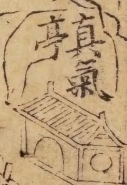 真氣
亭